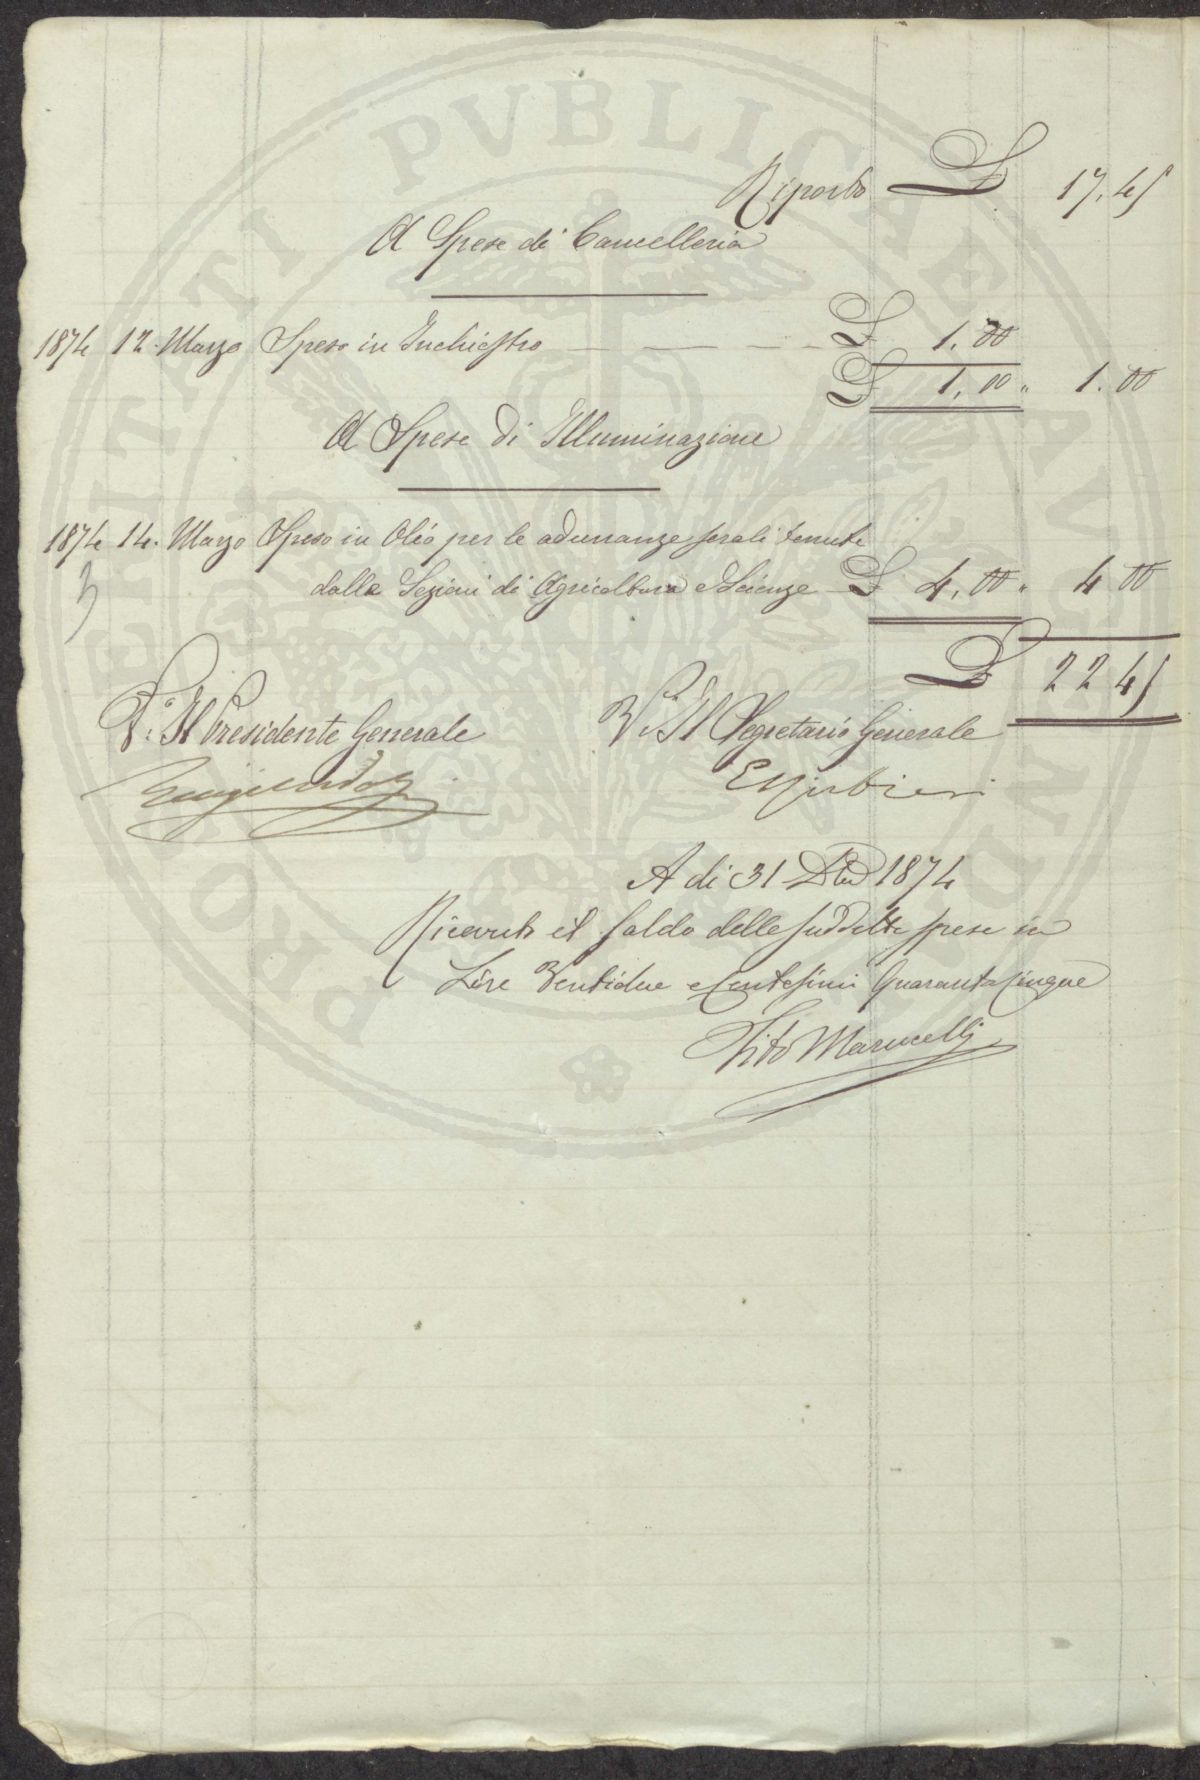 Riporto £ 17,45
A Spese di Cancelleria
1874 12. Marzo Speso in Inchiostro £ 1,00
£ 1,00 " 1.00
A Spese di Illuminazione
1874 14. Marzo Speso in Olio per le adunanze serali tenute
dalle Sezioni di Agricoltura e Scienze £ 4,00 " 4 00
£ 22 45
V.° Il Presidente Generale
V.° Il Segretario Generale
A di 31 Dbre 1874
Ricevuto il saldo delle suddette spese in
Lire Ventidue e Centesimi Quarantacinque
Tito Marucelli
PROSPERITATI PVBLICAE AVGENDAE